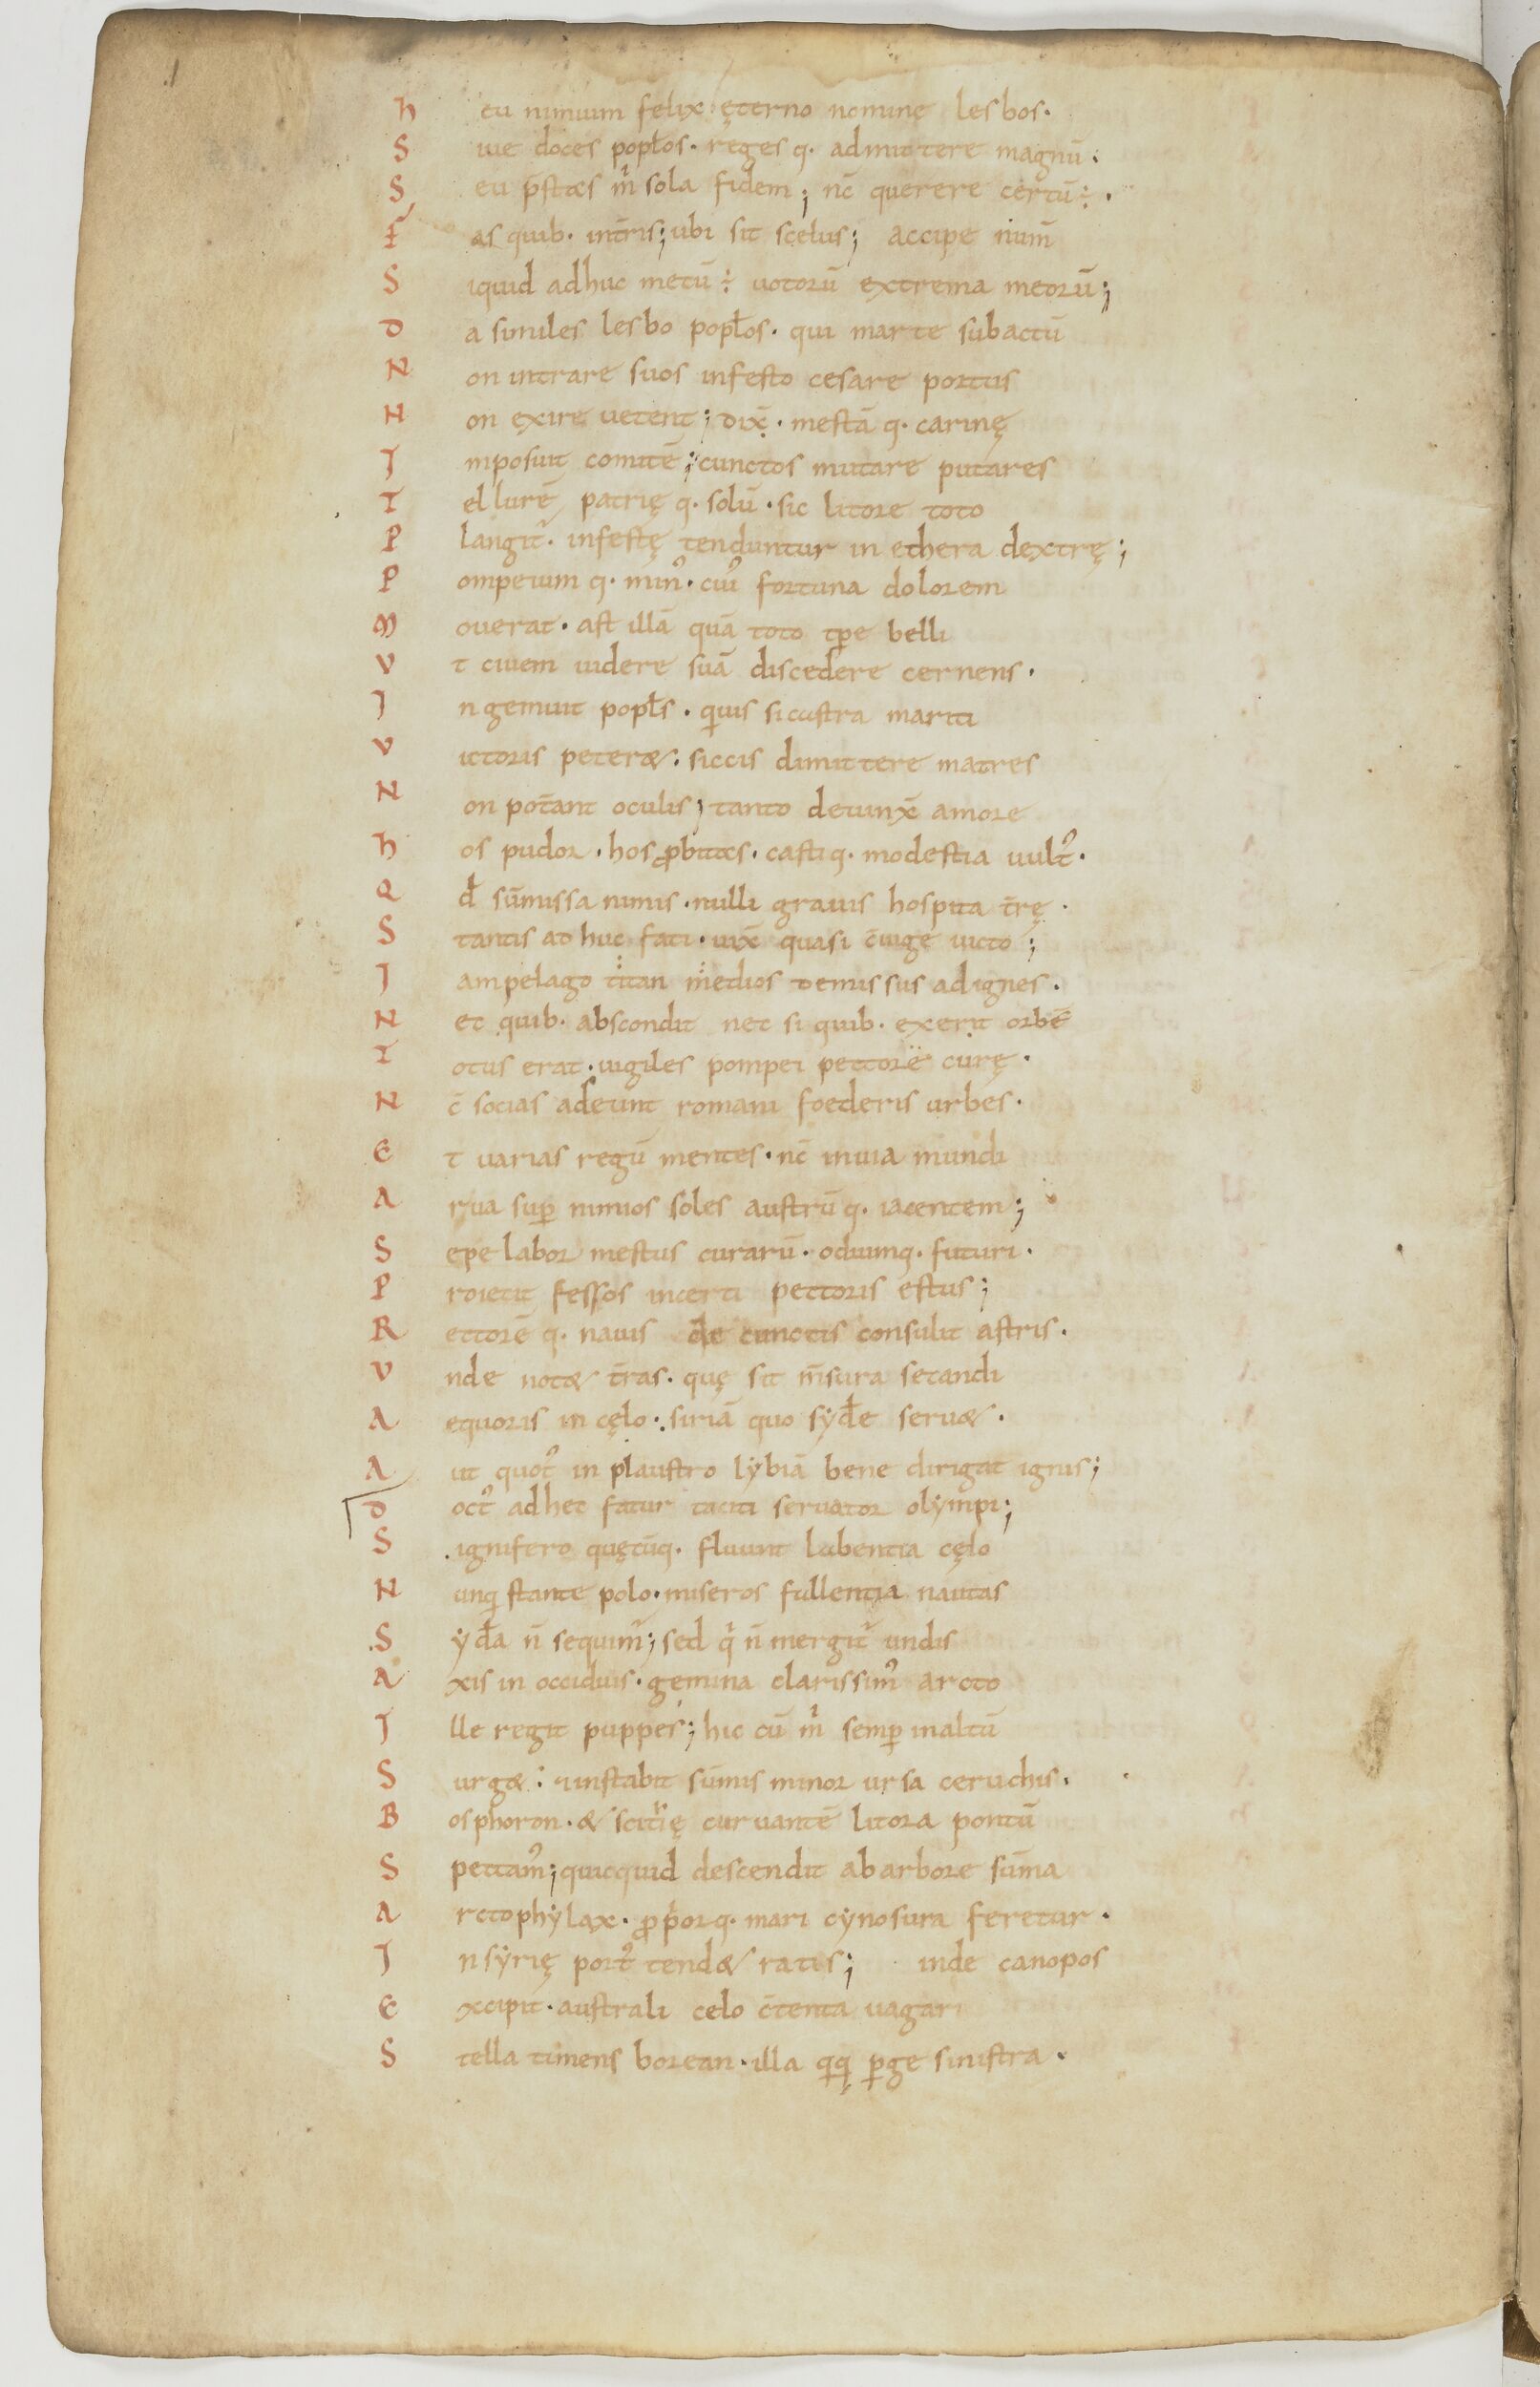 h eu nimium felix ęterno nomine lesbos·
S iue doces popl̄os· reges q· admittere magnū·
S eu p̄stas m̄ sola fidem; nc̄ querere certū÷·
F as quib· int̄ris; ubi sit scelus; accipe num̄
S iquid adhuc metū÷ uotorū extrema meorū;
D a similes lesbo popl̄os· qui marte subactū
N on intrare suos infesto cesare portus
N on exire uetent; dix̄· mestā q· carinę
I mposuit comitē; cunctos mutare putares
T ellurē patrię q· solū· sic litore toto
P langit᷑· infestę tenduntur in ethera dextrę;
P ompeium q· minꝰ· cuiꝰ fortuna dolorem
M ouerat· ast illā quā toto tp̄e belli
V t ciuem uidere suā discedere cernens·
I ngemuit popl̄s· qͥuis si castra mariti
V ictoris peter&· siccis dimittere matres
N on pot̄ant oculis; tanto deuinx̄ amore
h os pudor· hos ꝓbitas· casti q· modestia uultꝰ·
Q d̄ sūmissa nimis· nulli grauis hospita t̄rę·
S tantis ad huc fati· uix̄ quasi c̄iuge uicto;
I ampelago titan medios demissus ad ignes·
N ec quib· abscondit nec si quib· exerit orbē
T otus erat· uigiles pompei pectore curę·
N c̄ socias adeunt romani foederis urbes·
E t uarias regū mentes· nc̄ inuia mundi
A rua sup̄ nimios soles austrū q· iacentem;
S epe labor mestus curarū· odiumq· futuri·
P roiecit fessos incerti pectoris estus;
R ectorē q· nauis de cunctis consulit astris·
V nde not& t̄ras· quę sit m̄sura secandi
A equoris in cęlo· siriā quo sẏd̄e seru&·
A ut quotꝰ in plaustro lẏbiā bene dirigat ignis;
D octꝰ ad hec fatur taciti seruator olẏmpi;
S ignifero quęcūq· fluunt labentia cęlo
N unqͣ stante polo· miseros fallentia nautas
S ẏd̄a n̄ sequim᷑; sed qͥ n̄ mergit᷑ undis
A xis in occiduis· gemina clarissimꝰ arcto
I lle regit puppes; hic cū mͥ semp̄ inaltū
S urg&: ⁊instabit sūmis minor ursa ceruchis·
B osphoron· & scitͪię curuantē litora pontū
S pectamꝰ; quicquid descendit ab arbore sūma
A rctophẏlax· ꝓpͥorq· mari cẏnosura feretur·
I nsẏrię portꝰ tend& ratis; inde canopos
E xcipit· australi celo c̄tenta uagari
S tella timens borean· illa qͦqꝫ p̄ge sinistra·